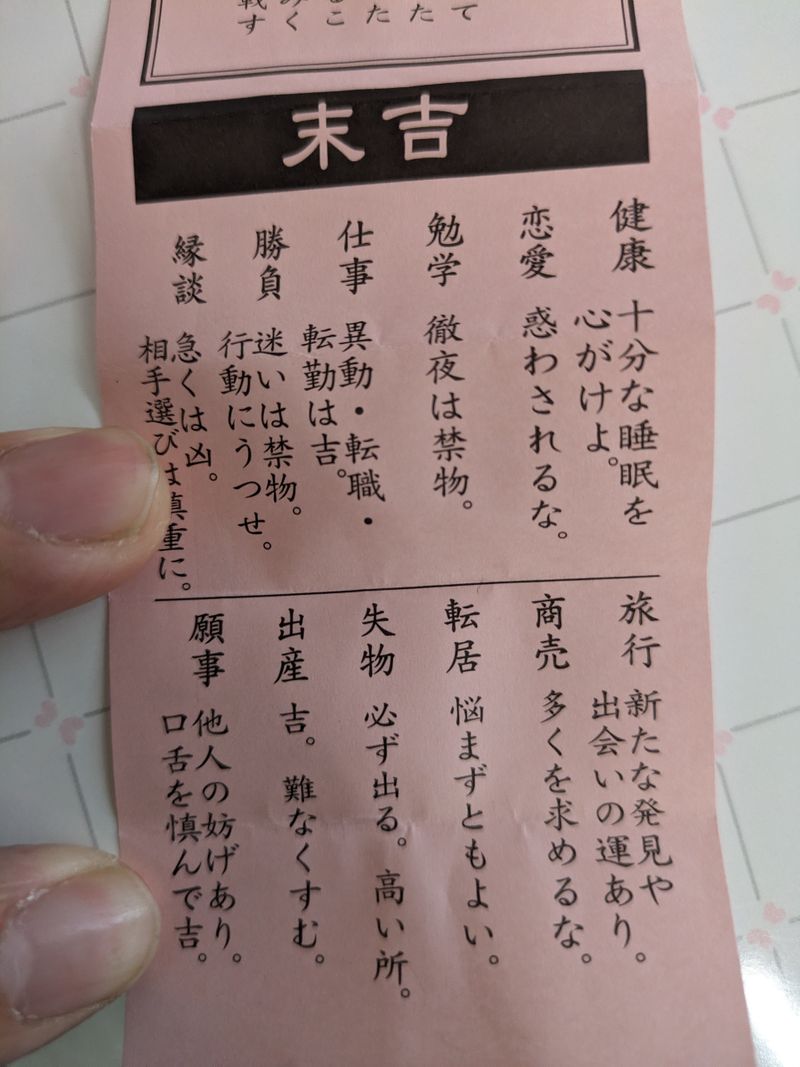 て
た
た
こ
く
す
末吉
健康
十分な睡眠を
心がけよ。
恋愛
惑わされるな。
勉学
徹夜は禁物。
仕事
異動・転職・
転勤は吉。
勝負
迷いは禁物。
行動にうつせ。
縁談
急くは凶。
相手選びは慎重に。
旅行
新たな発見や
出会いの運あり。
商売
多くを求めるな。
転居
悩まずともよい。
失物
必ず出る。高い所。
出産
吉。難なくすむ。
願事
他人の妨げあり。
口舌を慎んで吉。